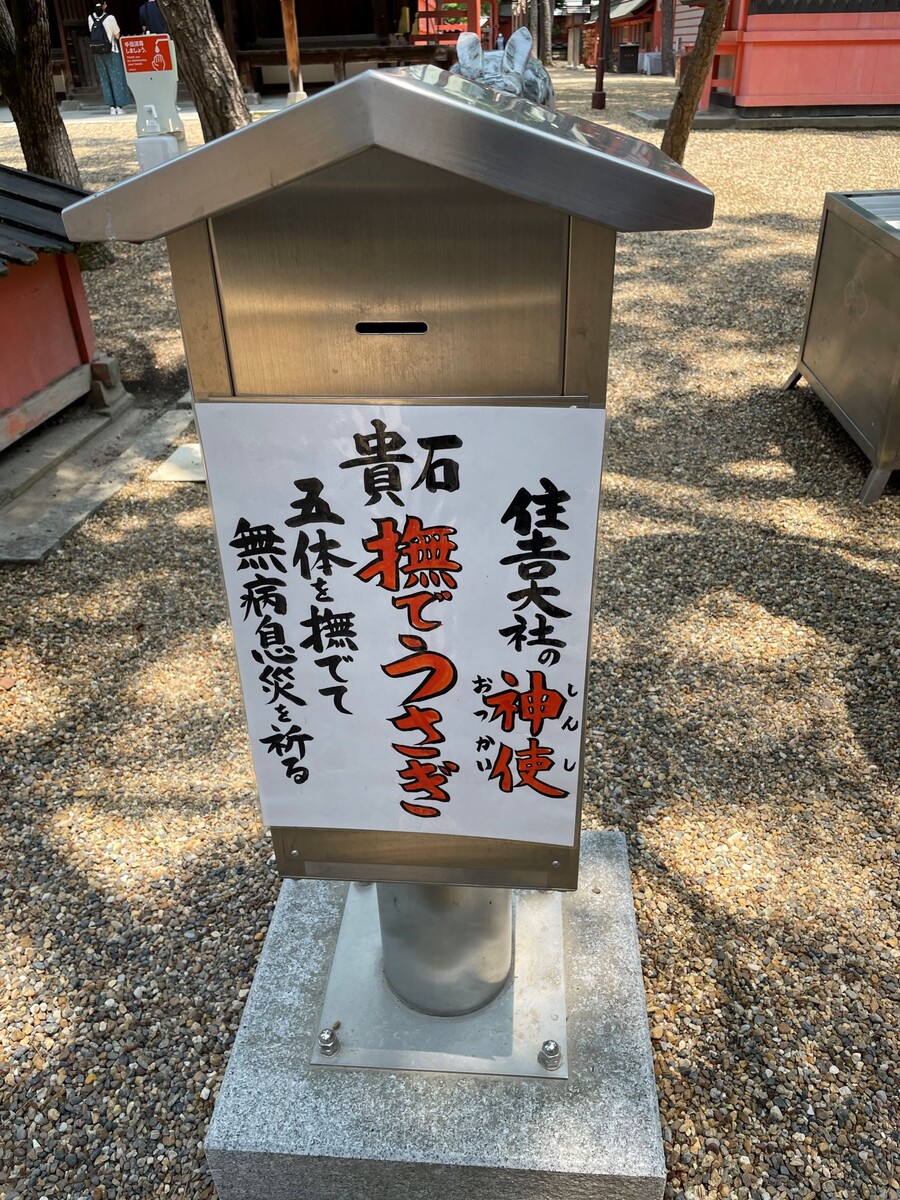 住吉大社の神使
しんし
おつかい
貴石
撫でうさぎ
五体を撫でて
無病息災を祈る
手指消毒
しましょう。